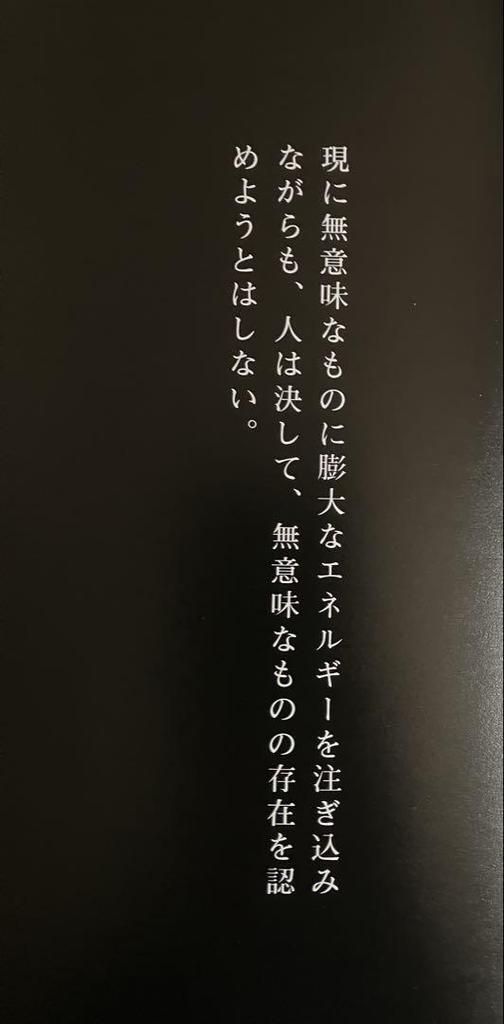 現に無意味なものに膨大なエネルギーを注ぎ込み
ながらも、人は決して、無意味なものの存在を認
めようとはしない。